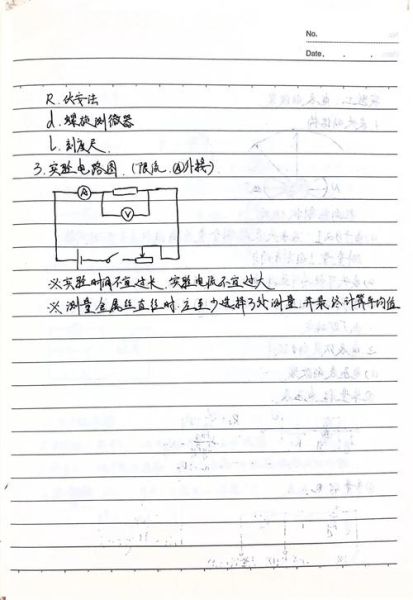 No.
Date.
R. 伏安法
d. 螺旋测微器
l. 刻度尺.
3. 实验电路图. (限流. Ⓐ外接)
A
V
※ 实验时间不宜过长, 实验电流不宜过大.
※ 测量金属丝直径时, 应至少选择3处测量, 并最终计算平均值.